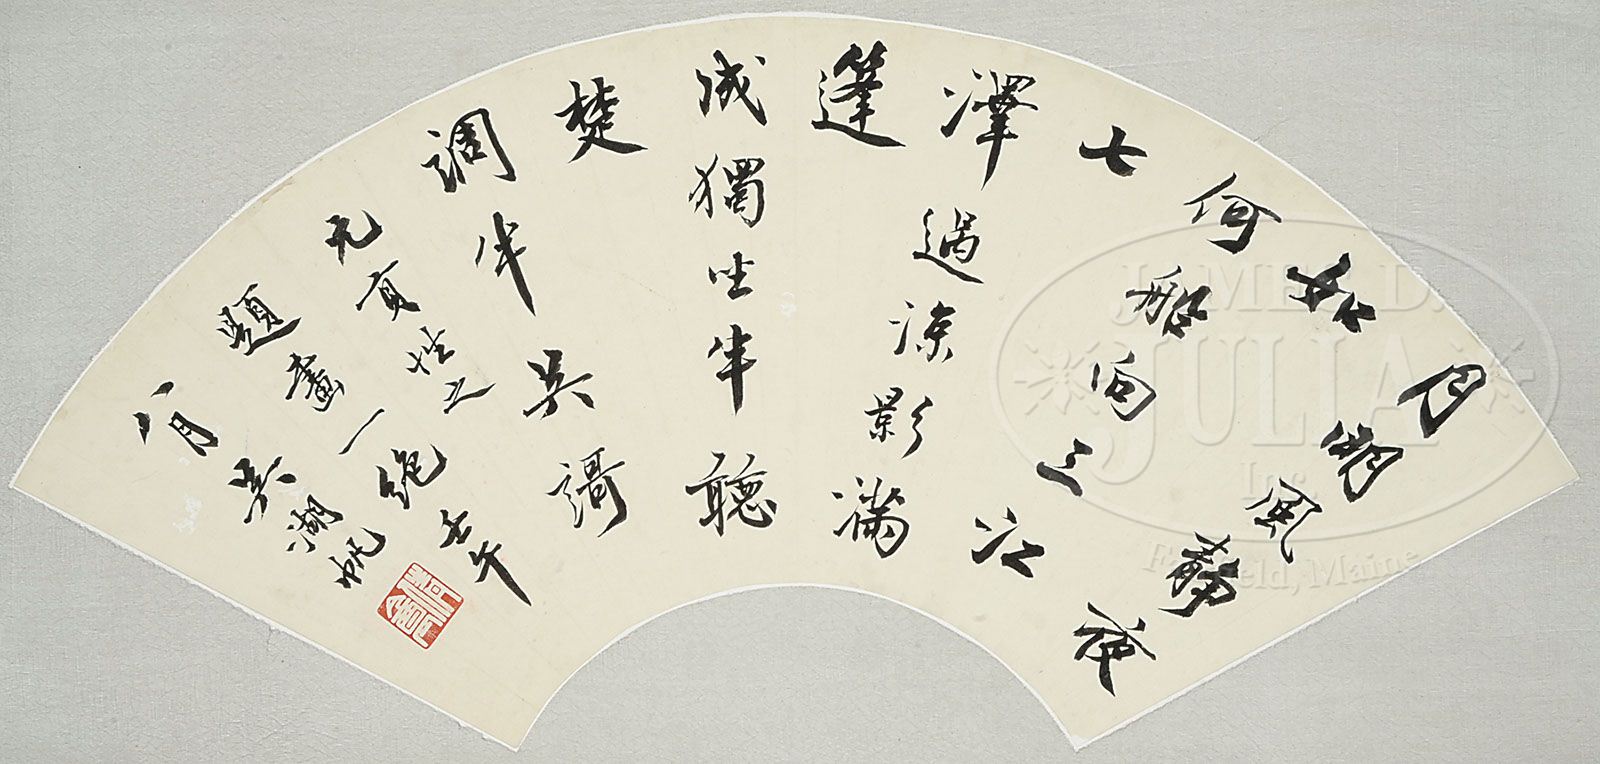 月明風静夜
如
何船向三江
七
澤過涼影滿
篷
成獨坐半聽
楚
調半吳謌
元貢性之
題畫一絕壬午
八月吳湖帆
JAMES D.
JULIA
Inc.
Fairfield, Maine